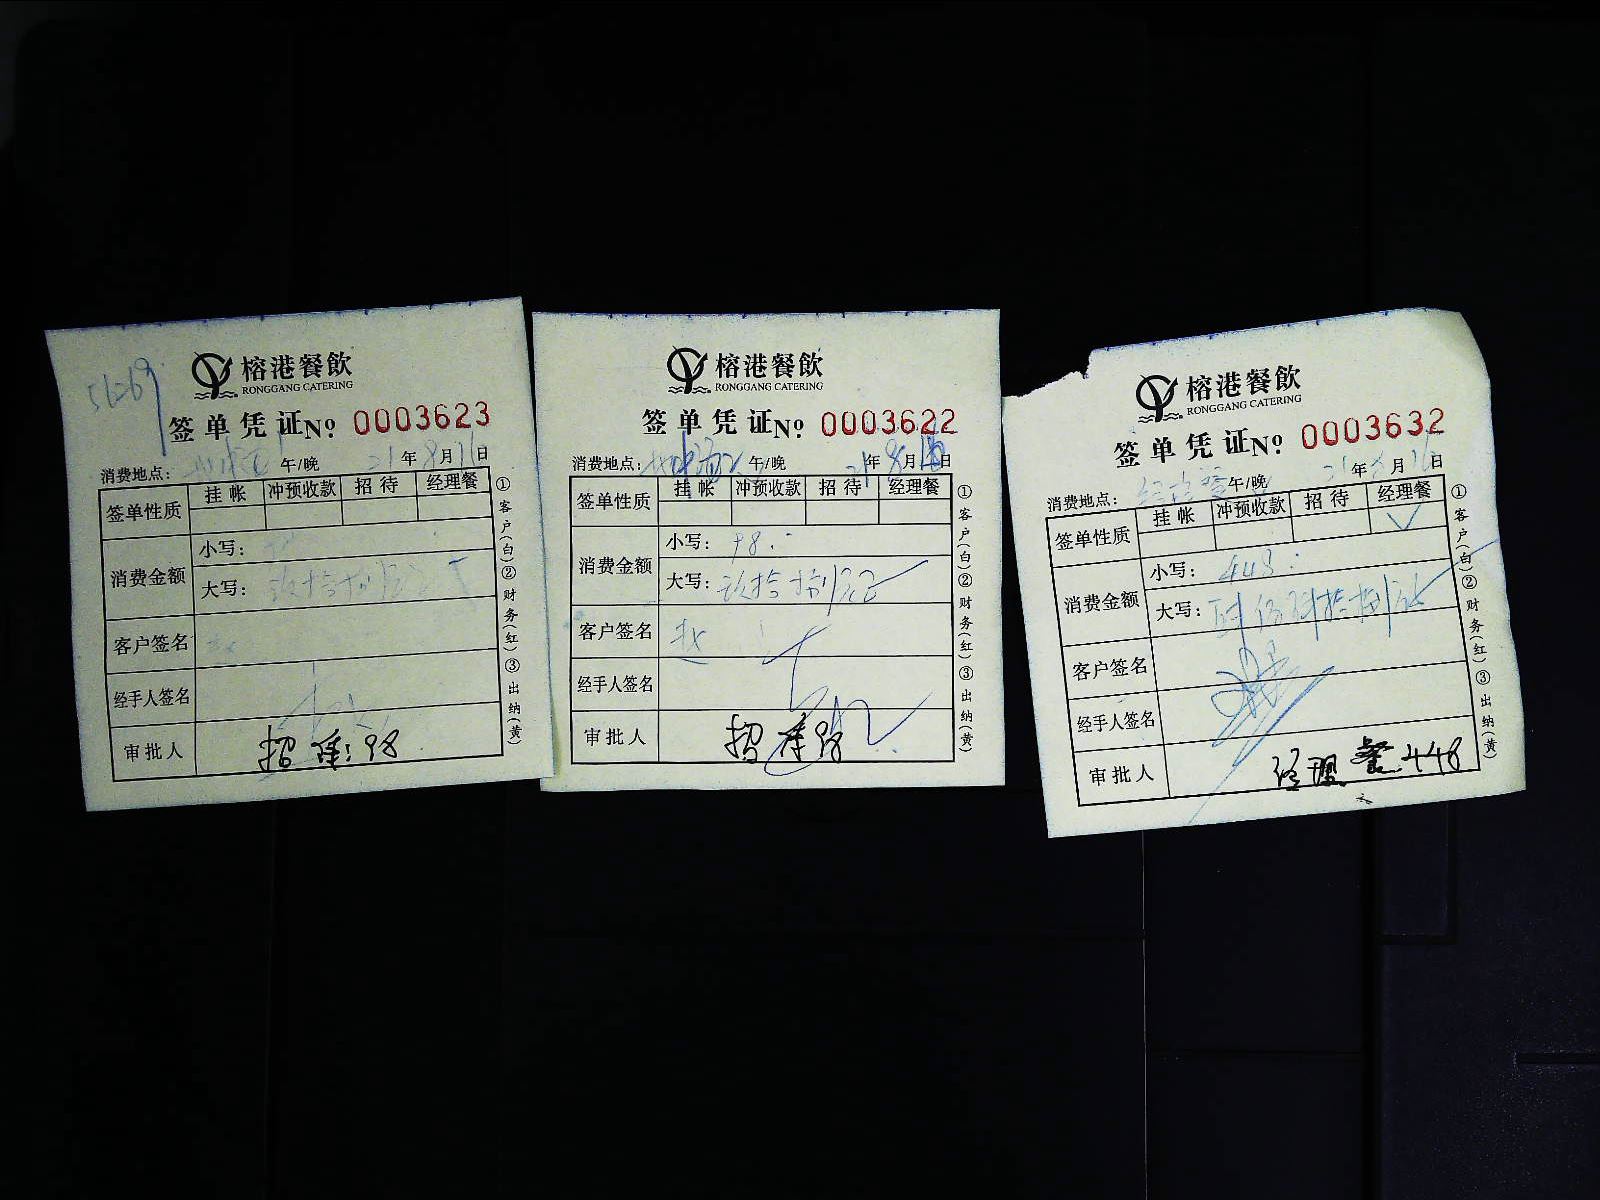 榕港餐飲
RONGGANG CATERING
签单凭证No. 0003623
消费地点: 午/晚 21年8月16日
签单性质 挂帐 冲预收款 招待 经理餐
消费金额 小写:
大写: 玖拾捌元
客户签名
经手人签名
审批人 招待:98
①客户(白)②财务(红)③出纳(黄)
榕港餐飲
RONGGANG CATERING
签单凭证No. 0003622
消费地点: 午/晚 21年8月16日
签单性质 挂帐 冲预收款 招待 经理餐
消费金额 小写: 98.
大写: 玖拾捌元正
客户签名 赵
经手人签名
审批人 招待98
①客户(白)②财务(红)③出纳(黄)
榕港餐飲
RONGGANG CATERING
签单凭证No. 0003632
消费地点: 经理餐 午/晚 21年8月16日
签单性质 挂帐 冲预收款 招待 经理餐
消费金额 小写: 448.
大写: 肆佰肆拾捌元
客户签名
经手人签名
审批人 经理餐:448
①客户(白)②财务(红)③出纳(黄)